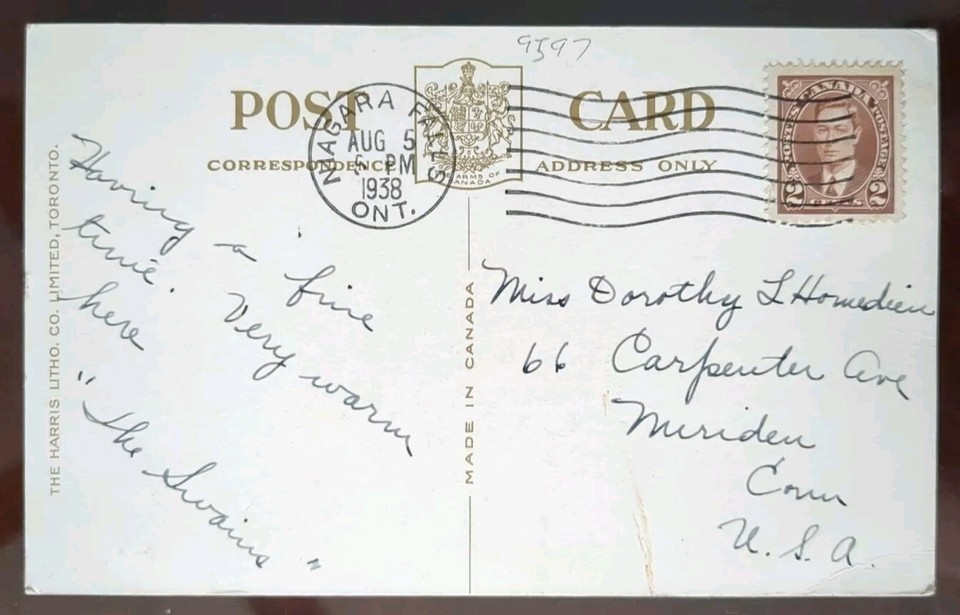 9597
POST CARD
CORRESPONDENCE ADDRESS ONLY
ARMS OF
CANADA
NIAGARA FALLS
AUG 5
5 PM
1938
ONT.
CANADA
POSTES POSTAGE
2 CENTS 2
THE HARRIS LITHO. CO. LIMITED, TORONTO.
MADE IN CANADA
Having a fine
time. Very warm
here
"The Swains"
Miss Dorothy L Homedieu
66 Carpenter Ave
Meriden
Conn
U.S.A.